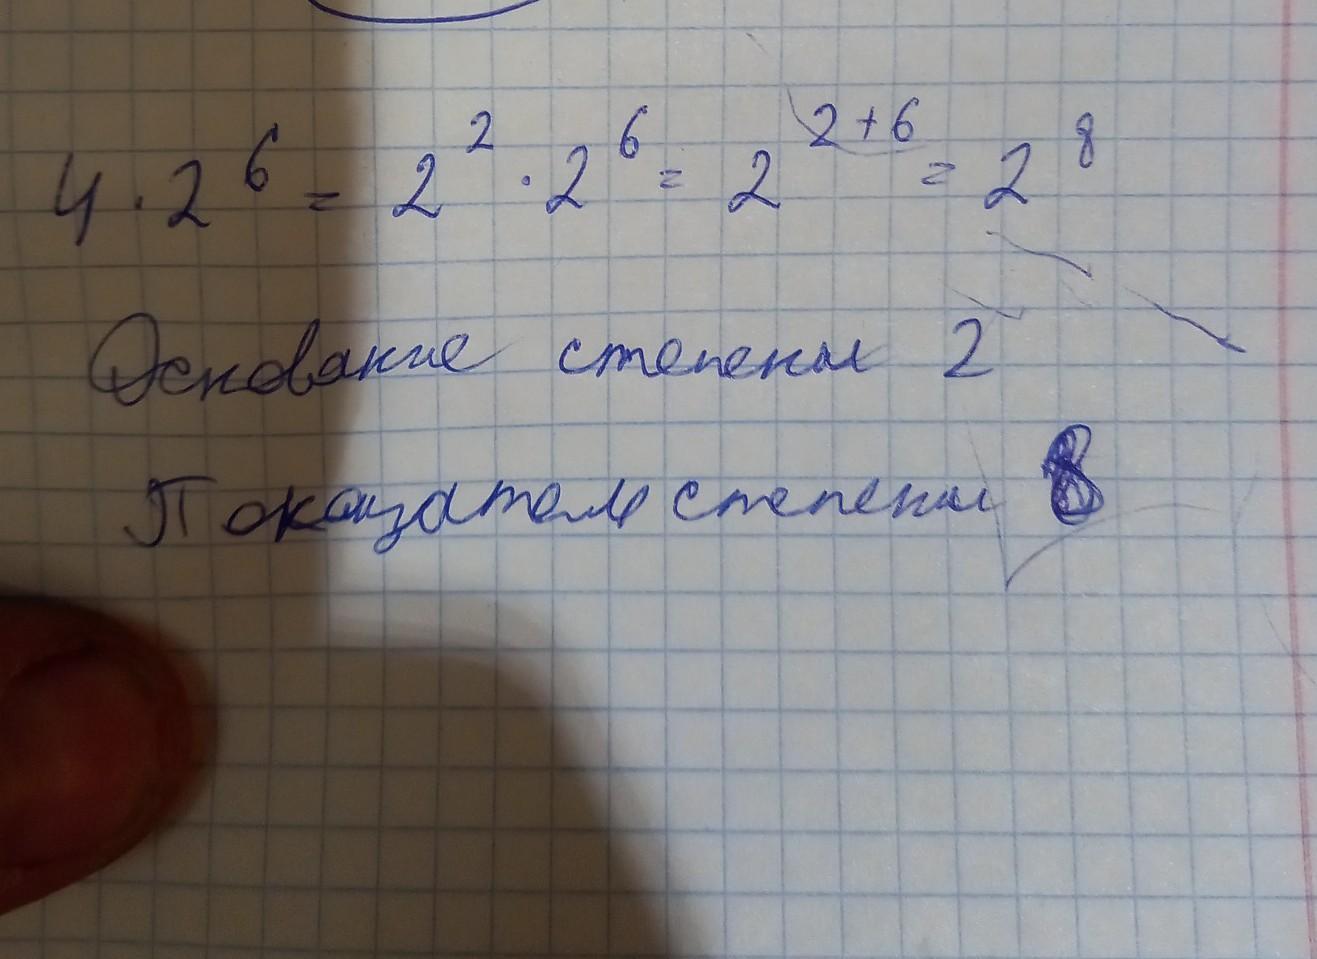 4 · 2⁶ = 2² · 2⁶ = 2²⁺⁶ = 2⁸
Основание степени 2
Показатель степени 8